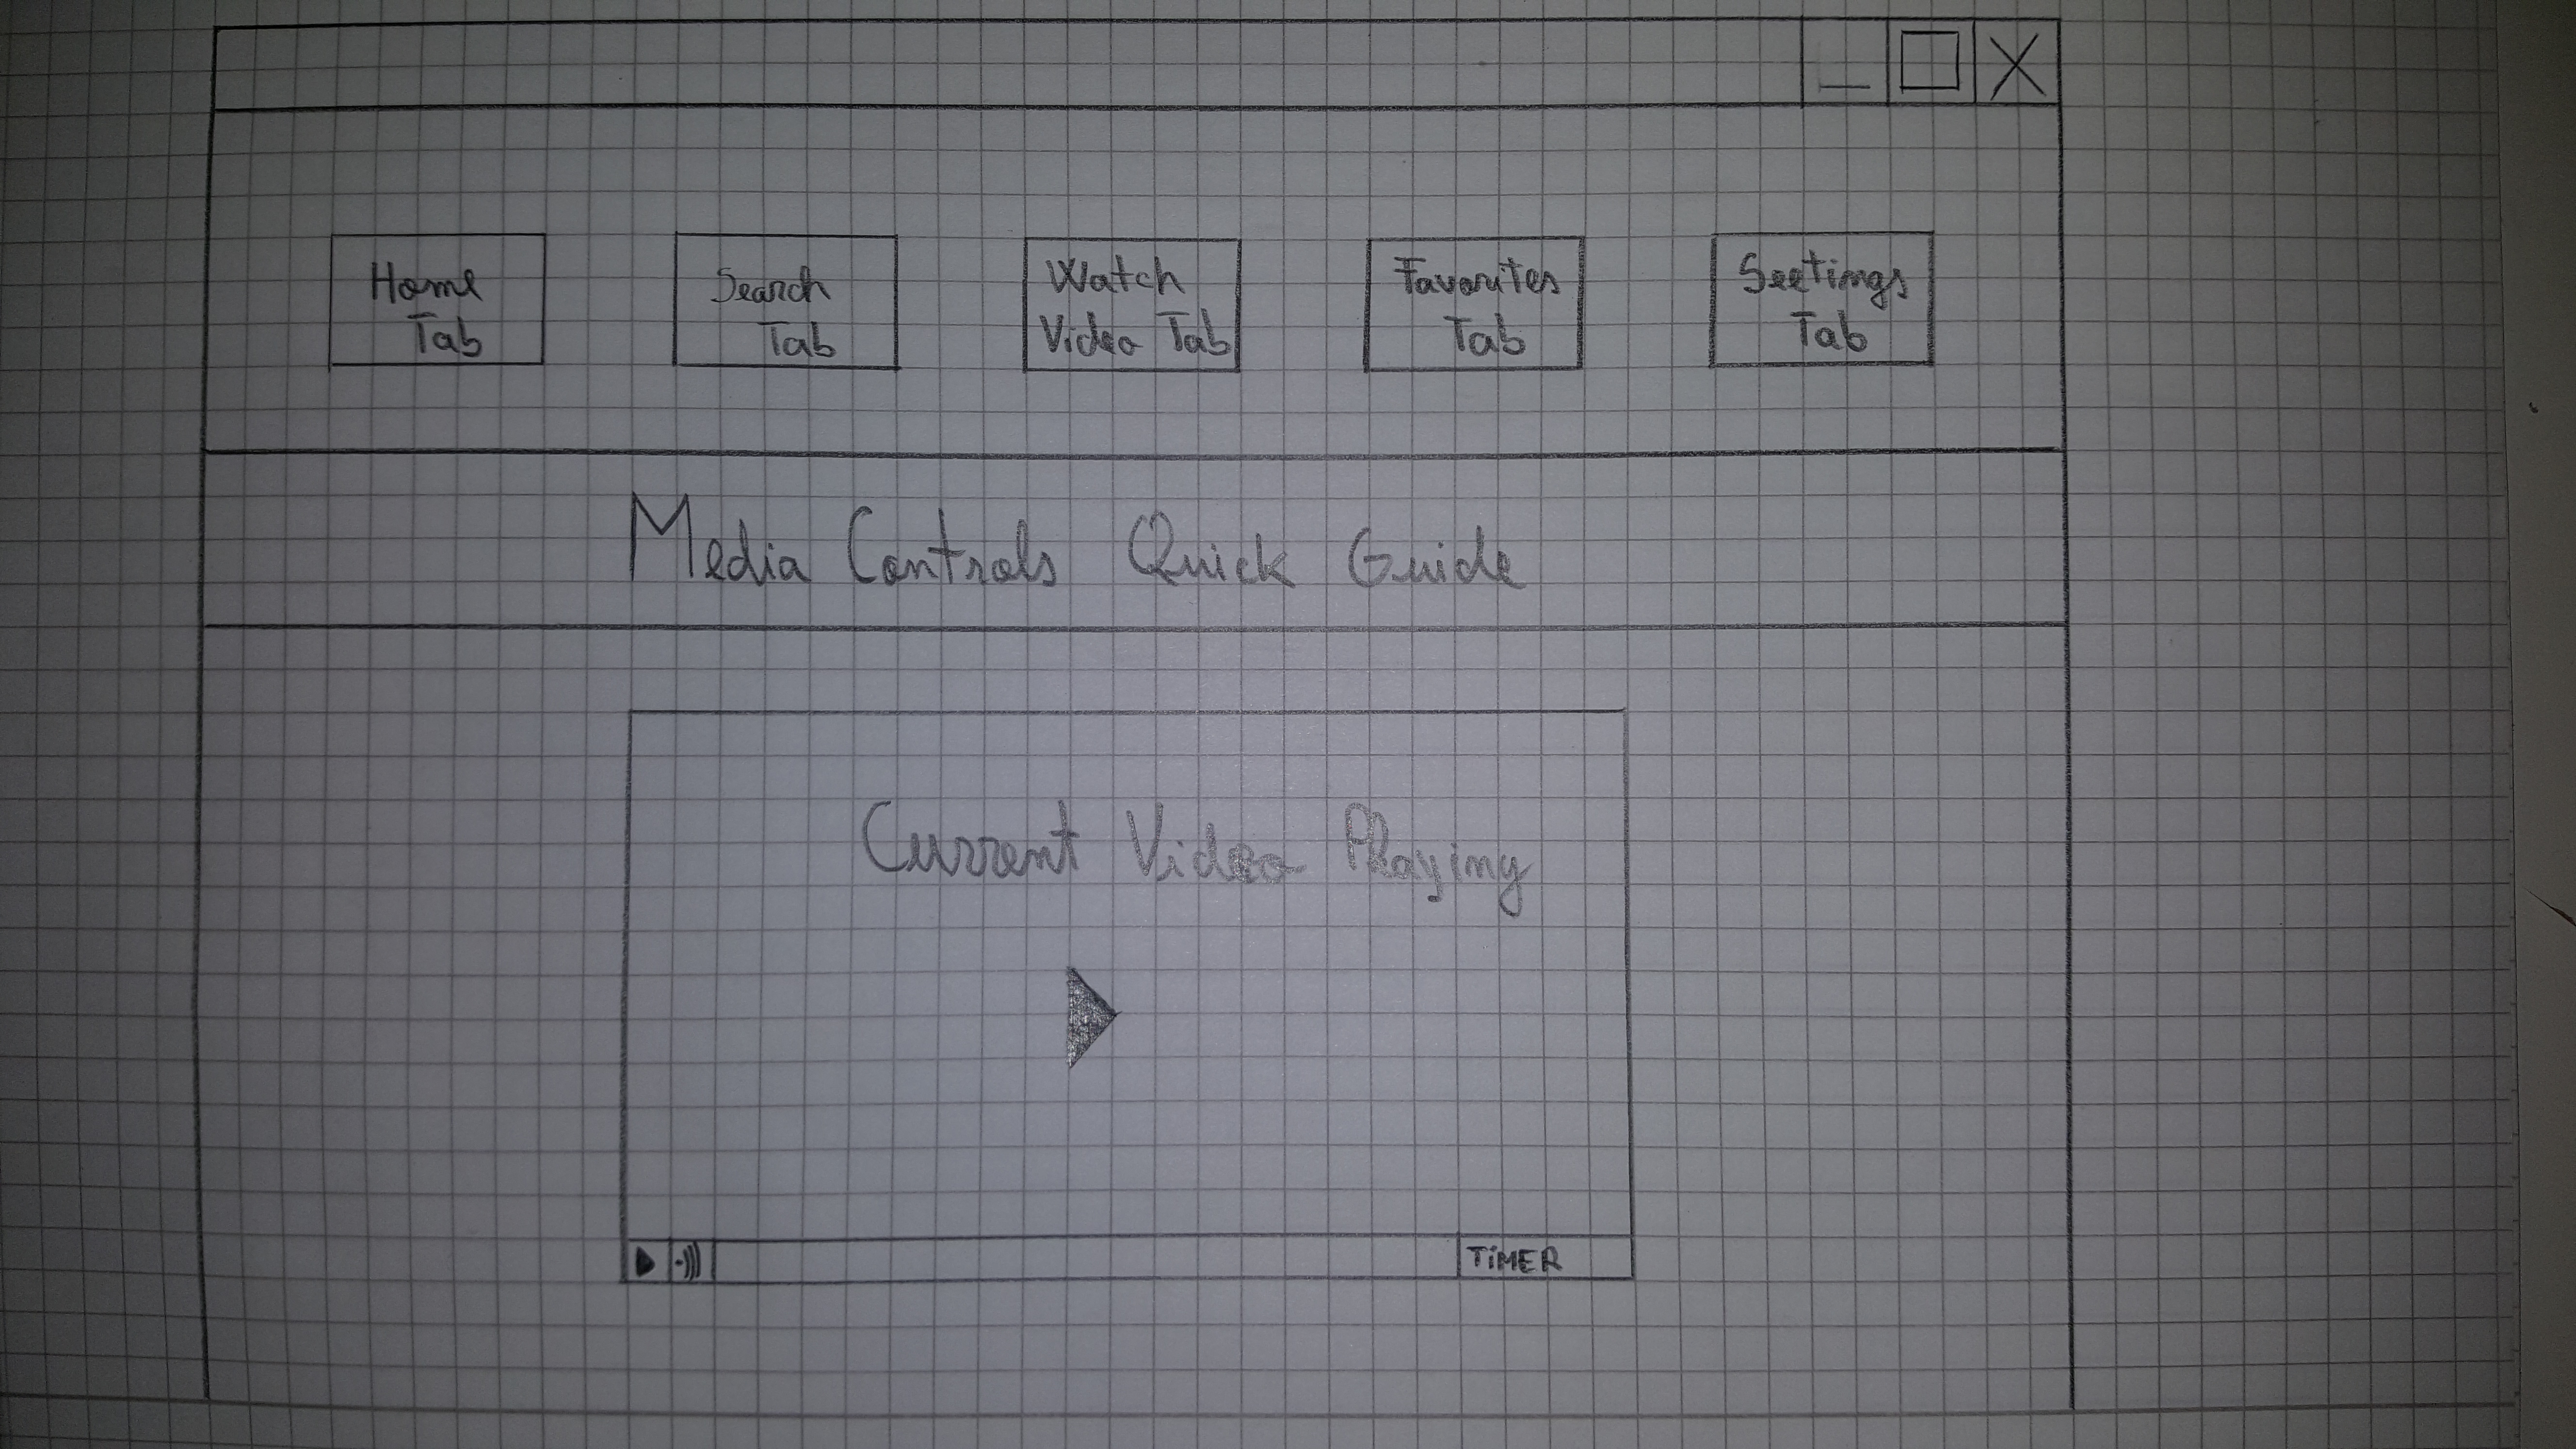 Home
Tab
Search
Tab
Watch
Video Tab
Favorites
Tab
Seetings
Tab
Media Controls Quick Guide
Current Video Playing
TiMER